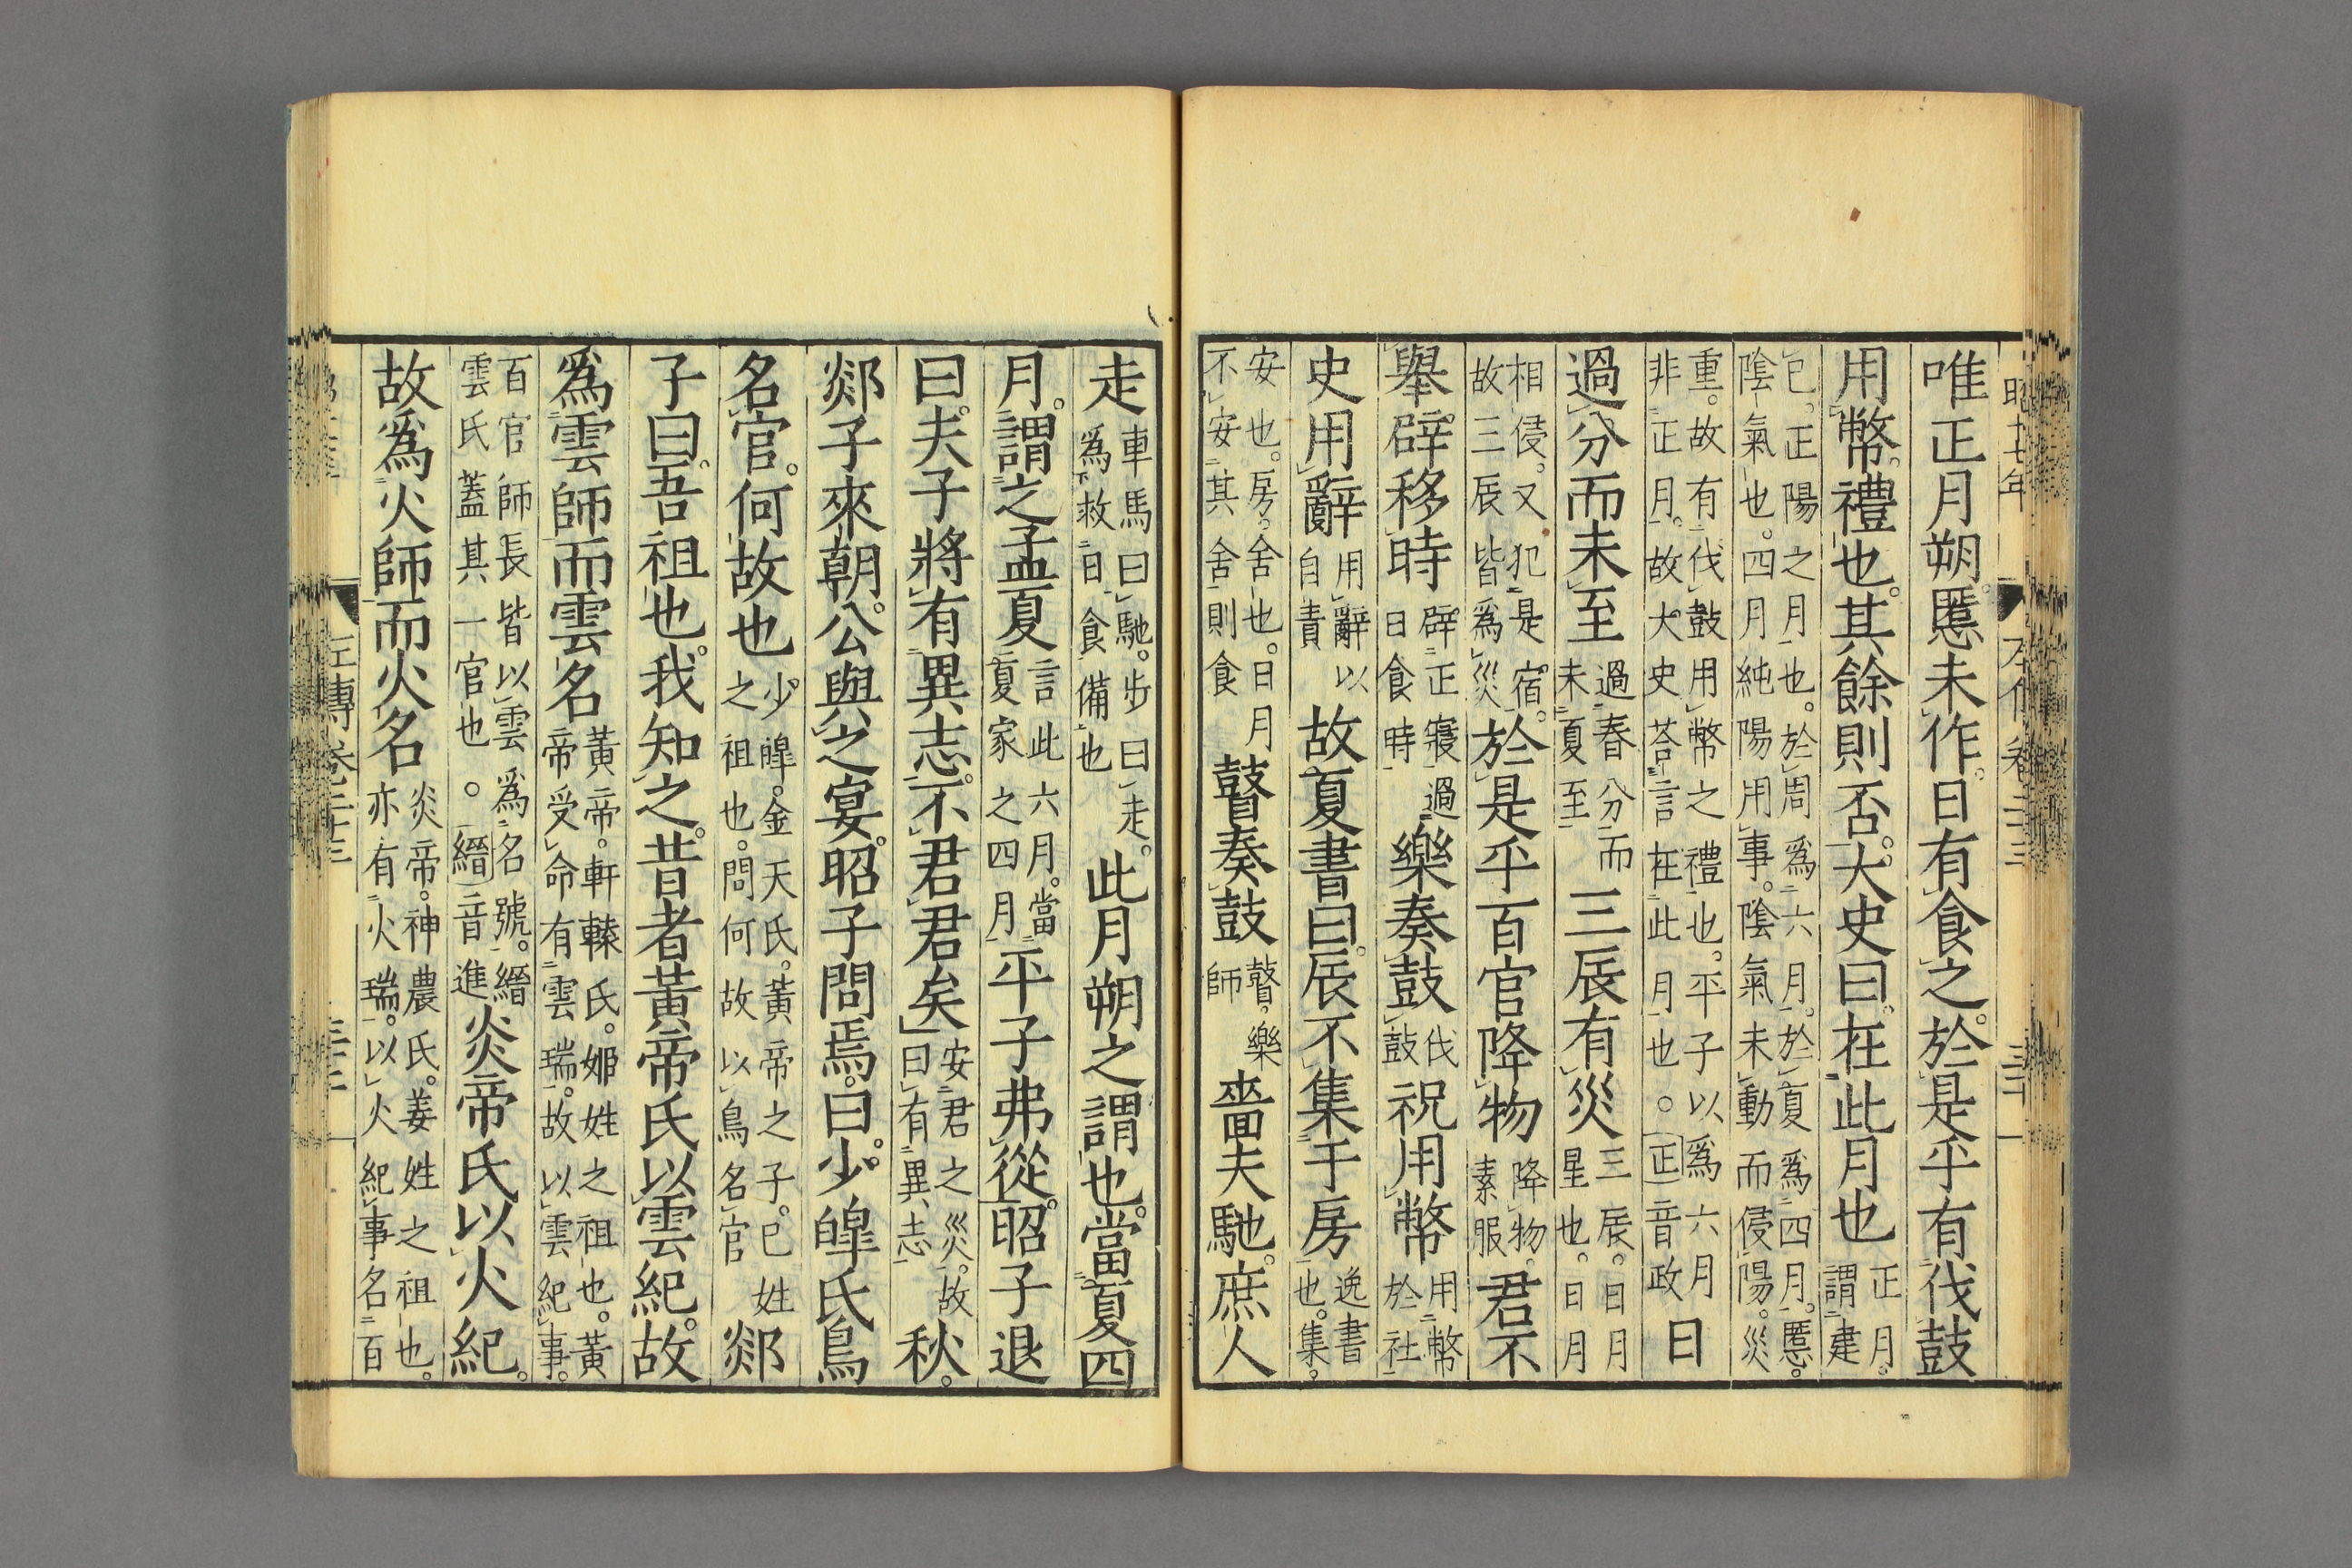 昭十七年
唯正月朔慝未作。日有食之。於是乎有伐鼓
用幣。禮也。其餘則否。大史曰。在此月也正月。謂建
巳。正陽之月也。於周爲六月。於夏爲四月。慝。
陰氣也。四月純陽用事。陰氣未動而侵陽。災
重。故有伐鼓用幣之禮也。平子以爲六月
非正月。故大史荅言在此月也。○正音政日
過分而未至過春分而未夏至三辰有災三辰。日月星也。日月
相侵。又犯是宿。故三辰皆爲災於是乎百官降物降物。素服君不
舉。辟移時辟正寢過日食時樂奏鼓伐鼓祝用幣用幣於社
史用辭用辭以自責故夏書曰。辰不集于房逸書也。集。
安也。房。舍也。日月不安其舍則食瞽奏鼓瞽。樂師嗇夫馳。庶人
走車馬曰馳。步曰走。爲救日食備也此月朔之謂也。當夏四
月。謂之孟夏言此六月。當夏家之四月平子弗從。昭子退
曰。夫子將有異志。不君君矣安君之災。故曰有異志秋。
郯子來朝。公與之宴。昭子問焉。曰。少皥氏鳥
名官。何故也少皥。金天氏。黃帝之子。已姓之祖也。問何故以鳥名官郯
子曰。吾祖也。我知之。昔者黃帝氏以雲紀。故
爲雲師而雲名黃帝。軒轅氏。姬姓之祖也。黃帝受命有雲瑞。故以雲紀事。
百官師長皆以雲爲名號。縉雲氏蓋其一官也。○縉音進炎帝氏以火紀。
故爲火師而火名炎帝。神農氏。姜姓之祖也。亦有火瑞。以火紀事名百
左傳卷二十三